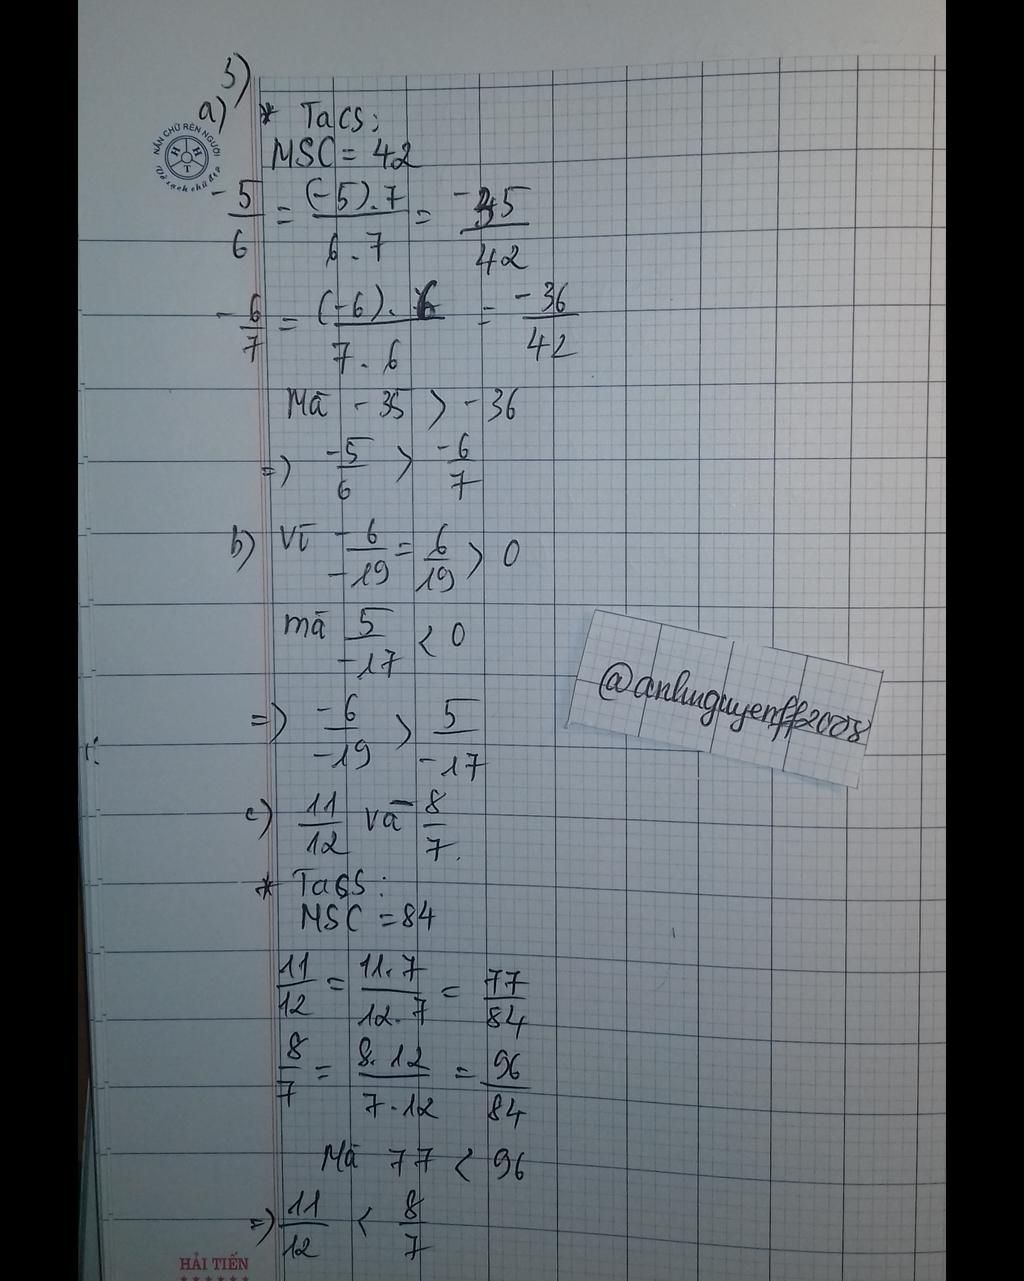 3)
a) * Ta có:
MSC = 42
-5/6 = (-5).7/6.7 = -35/42
-6/7 = (-6).6/7.6 = -36/42
Mà -35 > -36
=> -5/6 > -6/7
b) Vì -6/-19 = 6/19 > 0
mà 5/-17 < 0
=> -6/-19 > 5/-17
c) 11/12 và 8/7.
* Ta có:
MSC = 84
11/12 = 11.7/12.7 = 77/84
8/7 = 8.12/7.12 = 96/84
Mà 77 < 96
=> 11/12 < 8/7
@anhnguyenff2008
NẮN CHỮ RÈN NGƯỜI
H H T
Vở sạch chữ đẹp
HẢI TIẾN